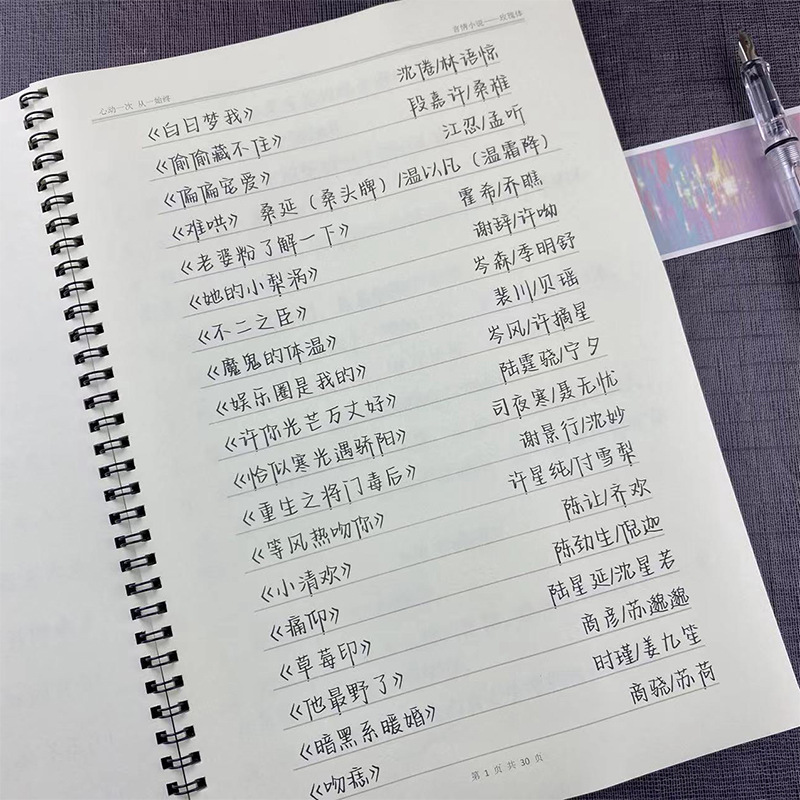 心动一次 从一始终 言情小说——玫瑰体
《白日梦我》 沈倦/林语惊
《偷偷藏不住》 段嘉许/桑稚
《偏偏宠爱》 江忍/孟听
《难哄》 桑延（桑头牌）/温以凡（温霜降）
《老婆粉了解一下》 霍希/乔瞧
《她的小梨涡》 谢辞/许呦
《不二之臣》 岑森/季明舒
《魔鬼的体温》 裴川/贝瑶
《娱乐圈是我的》 岑风/许摘星
《许你光芒万丈好》 陆霆骁/宁夕
《恰似寒光遇骄阳》 司夜寒/聂无忧
《重生之将门毒后》 谢景行/沈妙
《等风热吻你》 许星纯/付雪梨
《小清欢》 陈让/齐欢
《痛仰》 陈劲生/倪迦
《草莓印》 陆星延/沈星若
《他最野了》 商彦/苏邈邈
《暗黑系暖婚》 时瑾/姜九笙
《吻痣》 商骁/苏荷
第 1 页 共 30 页